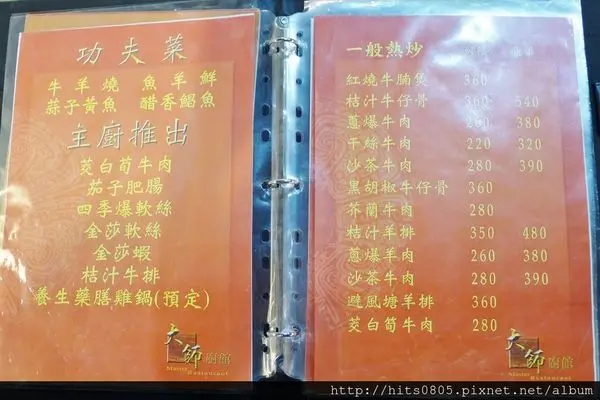 功夫菜
牛羊燒 魚羊鮮
蒜子黃魚 醋香鯧魚
主廚推出
茭白筍牛肉
茄子肥腸
四季爆軟絲
金莎軟絲
金莎蝦
桔汁牛排
養生藥膳雞鍋(預定)
大師廚館
Master Restaurant
一般熱炒
紅燒牛腩煲 360
桔汁牛仔骨 360 540
蔥爆牛肉 260 380
干絲牛肉 220 320
沙茶牛肉 280 390
黑胡椒牛仔骨 360
芥蘭牛肉 280
桔汁羊排 350 480
蔥爆羊肉 260 380
沙茶牛肉 280 390
避風塘羊排 360
茭白筍牛肉 280
大師廚館
Master Restaurant
http://hits0805.pixnet.net/album